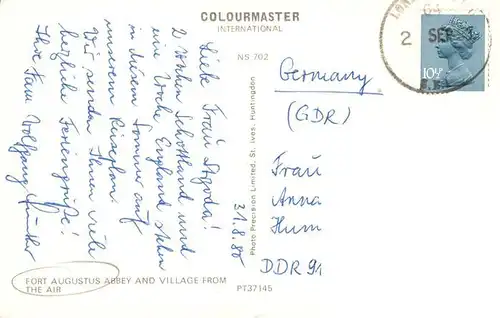 COLOURMASTER
INTERNATIONAL
NS 702
Liebe Frau
2 Wochen Schottland und
eine Woche England stehen
in diesem Sommer auf
unserem
Wir senden Ihnen viele
herzliche Feriengrüße!
Ihre Fam. Wolfgang Günther
31.8.80
Photo Precision Limited, St. Ives, Huntingdon
2 SEP
10½P
Germany
(GDR)
Frau
Anna
Hum
DDR 94
FORT AUGUSTUS ABBEY AND VILLAGE FROM
THE AIR
PT37145